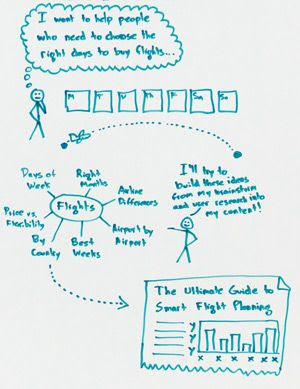 I want to help people
who need to choose the
right days to buy flights...
M T W Th F Sa Su
Days of
Week
Right
Months
Airline
Differences
Price vs.
Flexibility
Flights
Airport by
Airport
By
Country
Best
Weeks
I'll try to
build these ideas
from my brainstorm
and user research into
my content!
The Ultimate Guide to
Smart Flight Planning
y
y
y
x x x x x x